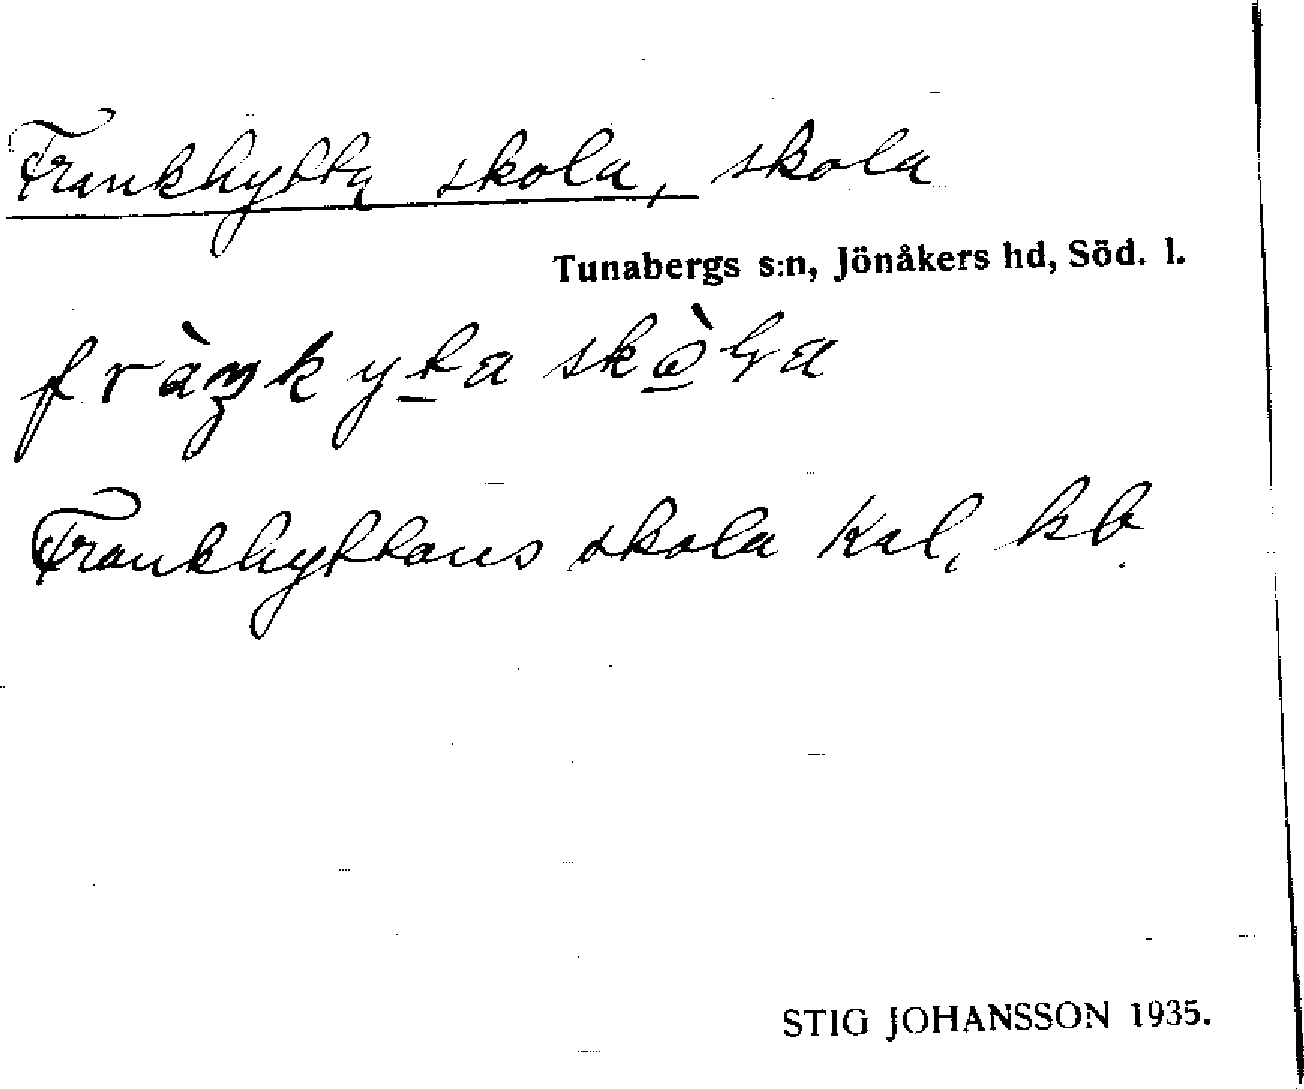 Frankhytta skola, skola
Tunabergs s:n, Jönåkers hd, Söd. l.
fràŋkyta skò̠ɽa
Frankhyttans skola kal, kb.
STIG JOHANSSON 1935.